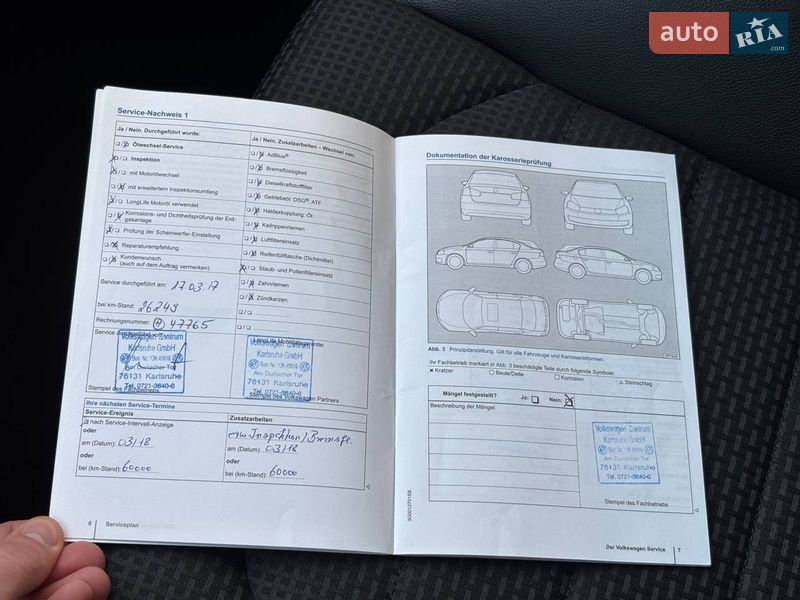 auto RIA .com
Service-Nachweis 1
Ja / Nein. Durchgeführt wurde:
Ölwechsel-Service
Inspektion
mit Motorölwechsel
mit erweitertem Inspektionsumfang
LongLife Motoröl verwendet
Korrosions- und Dichtheitsprüfung der Erd-
gasanlage
Prüfung der Scheinwerfer-Einstellung
Reparaturempfehlung
Kundenwunsch
(auch auf dem Auftrag vermerken)
Service durchgeführt am: 17.03.17
bei km-Stand: 26249
Rechnungsnummer: 47765
Service durchgeführt von:
Volkswagen Zentrum
Karlsruhe GmbH
Am Durlacher Tor
76131 Karlsruhe
Tel. 0721-3640-0
Stempel des Fachbetriebs
Ja / Nein. Zusatzarbeiten – Wechsel von:
AdBlue®
Bremsflüssigkeit
Dieselkraftstofffilter
Getriebeöl: DSG®, ATF
Haldexkupplung: Öl
Keilrippenriemen
Luftfiltereinsatz
Reifenfüllflasche (Dichtmittel)
Staub- und Pollenfiltereinsatz
Zahnriemen
Zündkerzen
LongLife Mobilitätsgarantie:
Volkswagen Zentrum
Karlsruhe GmbH
Am Durlacher Tor
76131 Karlsruhe
Tel. 0721-3640-0
Stempel des Volkswagen Partners
Ihre nächsten Service-Termine
Service-Ereignis
nach Service-Intervall-Anzeige
oder
am (Datum): 03/18
oder
bei (km-Stand): 60000
Zusatzarbeiten
am (Datum): 03/18
oder
bei (km-Stand): 60000
6 Serviceplan
Dokumentation der Karosserieprüfung
Abb. 3 Prinzipdarstellung. Gilt für alle Fahrzeuge und Karosserieformen.
Ihr Fachbetrieb markiert in Abb. 3 beschädigte Teile durch folgende Symbole:
× Kratzer ○ Beule/Delle □ Korrosion △ Steinschlag
Mängel festgestellt? Ja: Nein:
Beschreibung der Mängel:
Volkswagen Zentrum
Karlsruhe GmbH
Am Durlacher Tor
76131 Karlsruhe
Tel. 0721-3640-0
Stempel des Fachbetriebs
Der Volkswagen Service 7